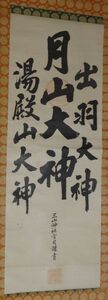 出羽大神
月山大神
湯殿山大神
三山神社宮司